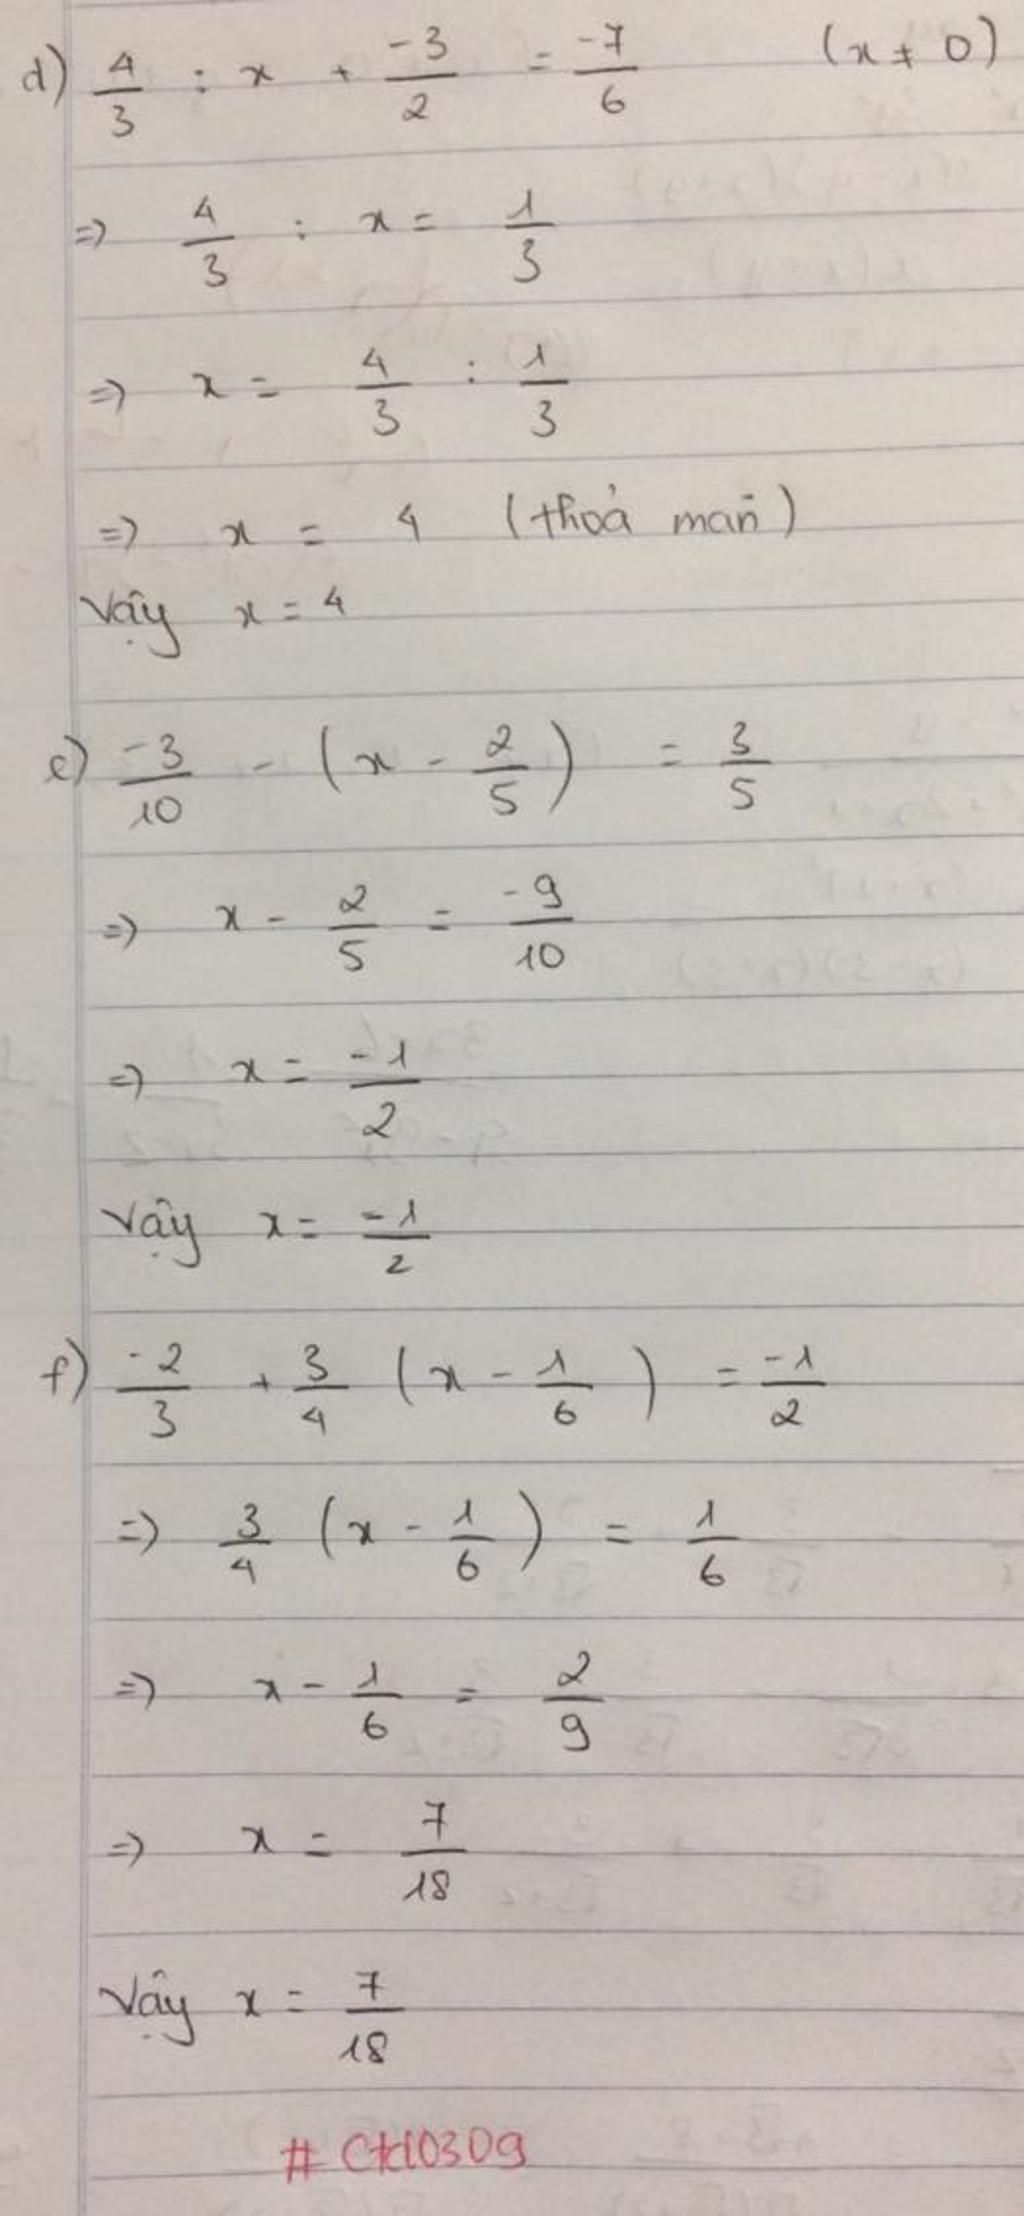 d) 4/3 : x + -3/2 = -7/6 (x ≠ 0)
=> 4/3 : x = 1/3
=> x = 4/3 : 1/3
=> x = 4 (thoả mãn)
Vậy x = 4
e) -3/10 - (x - 2/5) = 3/5
=> x - 2/5 = -9/10
=> x = -1/2
Vậy x = -1/2
f) -2/3 + 3/4 (x - 1/6) = -1/2
=> 3/4 (x - 1/6) = 1/6
=> x - 1/6 = 2/9
=> x = 7/18
Vậy x = 7/18